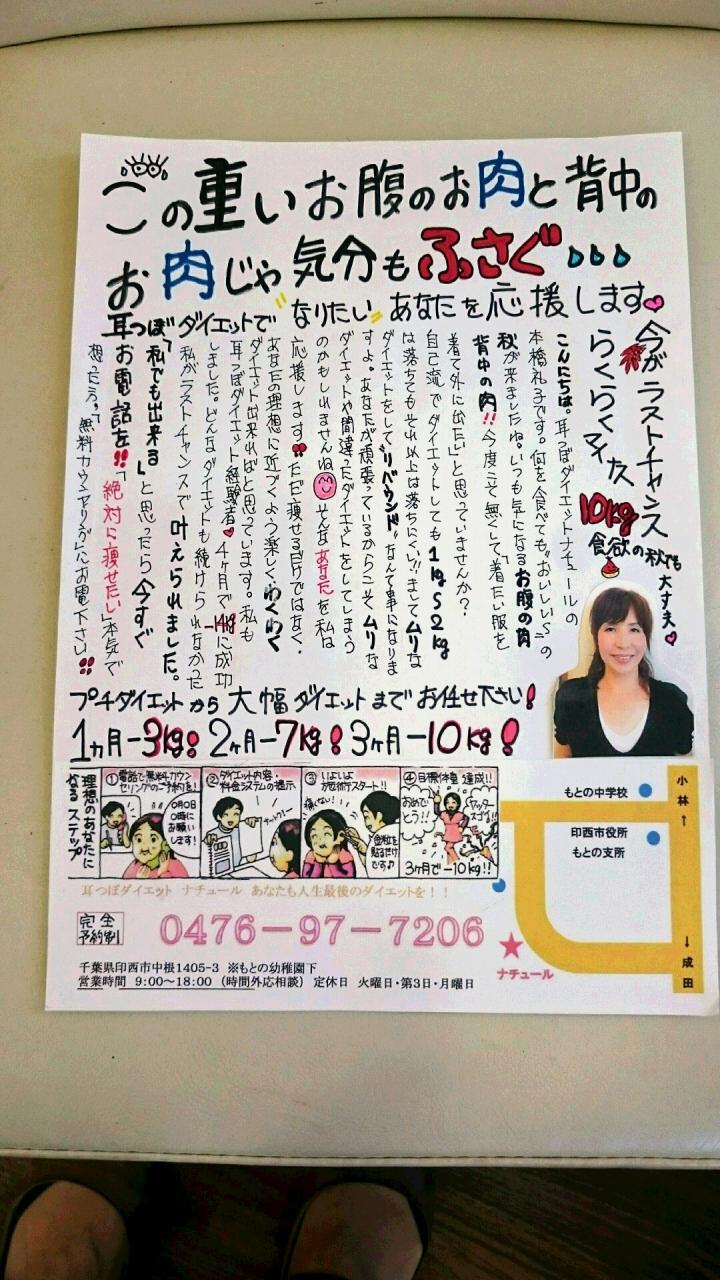 この重いお腹のお肉と背中の
お肉じゃ気分もふさぐ
耳つぼダイエットで"なりたい"あなたを応援します
今がラストチャンス
らくらくマイナス
10kg
食欲の秋でも
大丈夫
こんにちは。耳つぼダイエットナチュールの
本橋礼子です。何を食べても"おいしいぃ〜"の
秋が来ましたね。いつも気になるお腹の肉
背中の肉!!今度こそ無くして「着たい服を
着て外に出たい」と思っていませんか?
自己流でダイエットしても1kg〜2kg
は落ちてもそれ以上は落ちにくい!!ましてムリな
ダイエットをして"リバウンド"なんて事になりま
すよ。あなたが頑張っているからこそムリな
ダイエットや間違ったダイエットをしてしまう
のかもしれませんね そんなあなたを私は
応援します!!ただ痩せるだけではなく、
あなたの理想に近づくよう楽しくわくわく
ダイエット出来ればと思っています。私も
耳つぼダイエット経験者 4ヶ月で-14kgに成功
しました。どんなダイエットも続けられなかった
私がラストチャンスで叶えられました。
「私でも出来る」と思ったら今すぐ
お電話を!!「絶対に痩せたい」本気で
想った方。「無料カウンセリング」にお電話下さい!!
プチダイエットから大幅ダイエットまでお任せ下さい!
1ヵ月-3kg!2ヶ月-7kg!3ヶ月-10kg!
理想のあなたに
なるステップ
①電話で無料カウン
セリングのご予約を!
○月○日
○時に
お願い
します!
②ダイエット内容・
料金システムの提示
③いよいよ
施術スタート!!
痛くない!
金粒を
貼るだけ
です
④目標体重達成!!
おめで
とう!!
ヤッター
スゴイ!!
3ヶ月で-10kg!!
耳つぼダイエット ナチュール あなたも人生最後のダイエットを!!
完全
予約制
0476-97-7206
千葉県印西市中根1405-3 ※もとの幼稚園下
営業時間 9:00〜18:00（時間外応相談）定休日 火曜日・第3日・月曜日
もとの中学校
印西市役所
もとの支所
小林↑
↓成田
ナチュール